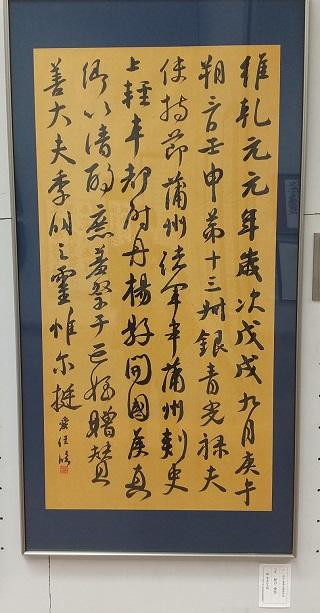 維乾元元年歲次戊戌九月庚午
朔三日壬申第十三叔銀青光祿夫
使持節蒲州諸軍事蒲州刺史
上輕車都尉丹楊縣開國侯真
卿以清酌庶羞祭于亡姪贈贊
善大夫季明之靈惟尔挺